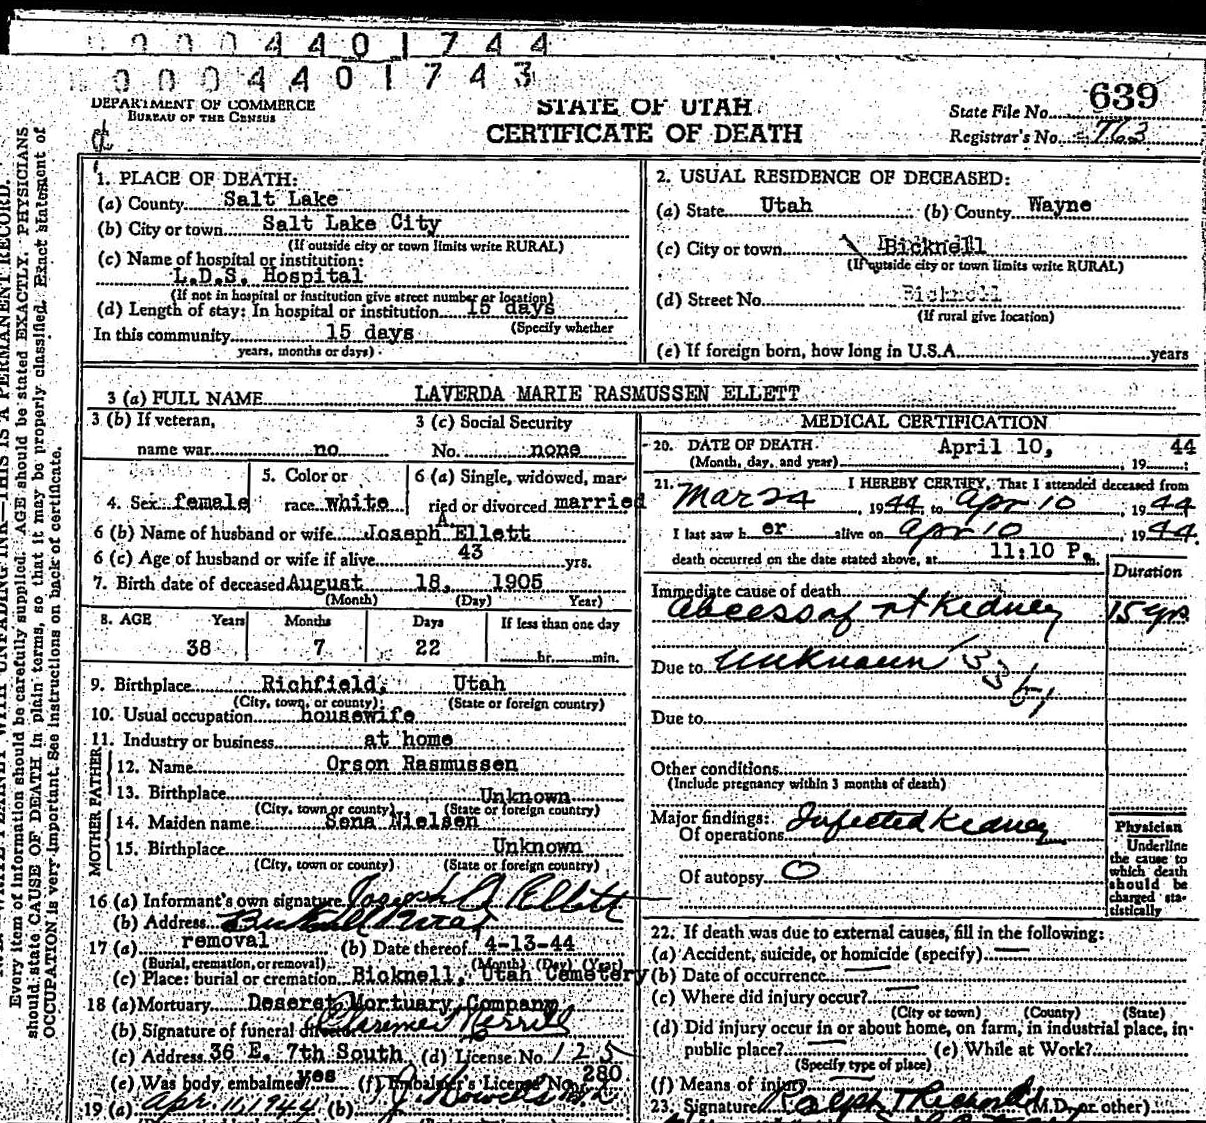 0 0 0 4 4 0 1 7 4 4
0 0 0 4 4 0 1 7 4 3
DEPARTMENT OF COMMERCE
BUREAU OF THE CENSUS
STATE OF UTAH
CERTIFICATE OF DEATH
State File No. 639
Registrar's No. 763
Every item of information should be carefully supplied. AGE should be stated EXACTLY. PHYSICIANS
should state CAUSE OF DEATH in plain terms, so that it may be properly classified. Exact statement of
OCCUPATION is very important. See instructions on back of certificate.
1. PLACE OF DEATH:
(a) County Salt Lake
(b) City or town Salt Lake City
(If outside city or town limits write RURAL)
(c) Name of hospital or institution:
L.D.S. Hospital
(If not in hospital or institution give street number or location)
(d) Length of stay: In hospital or institution 15 days
(Specify whether
In this community 15 days
years, months or days)
2. USUAL RESIDENCE OF DECEASED:
(a) State Utah (b) County Wayne
(c) City or town Bicknell
(If outside city or town limits write RURAL)
(d) Street No. Bicknell
(If rural give location)
(e) If foreign born, how long in U.S.A. years
3 (a) FULL NAME LAVERDA MARIE RASMUSSEN ELLETT
3 (b) If veteran,
name war no
3 (c) Social Security
No. none
4. Sex female
5. Color or
race white
6 (a) Single, widowed, mar-
ried or divorced married
6 (b) Name of husband or wife Joseph A. Ellett
6 (c) Age of husband or wife if alive 43 yrs.
7. Birth date of deceased August 18, 1905
(Month) (Day) Year)
8. AGE Years Months Days If less than one day
38 7 22 hr. min.
9. Birthplace Richfield, Utah
(City, town, or county) (State or foreign country)
10. Usual occupation housewife
11. Industry or business at home
FATHER
12. Name Orson Rasmussen
13. Birthplace Unknown
(City, town or county) (State or foreign country)
MOTHER
14. Maiden name Sena Nielsen
15. Birthplace Unknown
(City, town or county) (State or foreign country)
16 (a) Informant's own signature Joseph A Ellett
(b) Address Bicknell Utah
17 (a) removal (b) Date thereof 4-13-44
(Burial, cremation, or removal) (Month) (Day) (Year)
(c) Place: burial or cremation Bicknell, Utah Cemetery
18 (a) Mortuary Deseret Mortuary Company
(b) Signature of funeral director
(c) Address 36 E. 7th South (d) License No. 125
(e) Was body embalmed? yes (f) Embalmer's License No. 280
19 (a) Apr 11, 1944 (b)
MEDICAL CERTIFICATION
20. DATE OF DEATH April 10, 19 44
(Month, day, and year)
21. I HEREBY CERTIFY, That I attended deceased from
Mar 24, 1944, to Apr 10, 1944
I last saw h er alive on Apr 10, 1944.
death occurred on the date stated above, at 11:10 P m.
Duration
Immediate cause of death
Abcess of rt Kedney 15 yrs
Due to unknown 133 b1
Due to
Other conditions
(Include pregnancy within 3 months of death)
Major findings:
Of operations Infected Kedney
Of autopsy O
Physician
Underline
the cause to
which death
should be
charged sta-
tistically
22. If death was due to external causes, fill in the following:
(a) Accident, suicide, or homicide (specify)
(b) Date of occurrence
(c) Where did injury occur?
(City or town) (County) (State)
(d) Did injury occur in or about home, on farm, in industrial place, in
public place? (e) While at Work?
(Specify type of place)
(f) Means of injury
23. Signature Ralph T (M.D. or other)